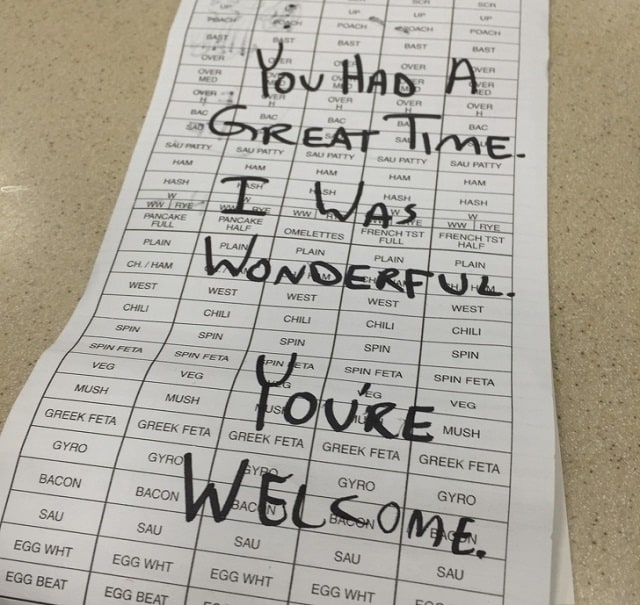 SCR SCR
UP UP UP UP
POACH POACH POACH POACH POACH
BAST BAST BAST BAST BAST
OVER OVER OVER OVER
YOU HAD A
OVER MED OVER MED
OVER H OVER H OVER H OVER H OVER H
BAC BAC BAC BA BAC
GREAT TIME.
SAU SA SA
SAU PATTY SAU PATTY SAU PATTY SAU PATTY SAU PATTY
HAM HAM HAM HAM HAM
HASH HASH HASH HASH HASH
I WAS
W W W
WW RYE WW RYE WW RYE WW RYE
PANCAKE FULL PANCAKE HALF OMELETTES FRENCH TST FULL FRENCH TST HALF
PLAIN PLAIN PLAIN PLAIN PLAIN
WONDERFUL.
CH. / HAM
WEST WEST WEST WEST WEST
CHILI CHILI CHILI CHILI CHILI
SPIN SPIN SPIN SPIN SPIN
SPIN FETA SPIN FETA SPIN FETA SPIN FETA SPIN FETA
VEG VEG VEG VEG VEG
YOU'RE
MUSH MUSH MUSH MUSH
GREEK FETA GREEK FETA GREEK FETA GREEK FETA GREEK FETA
GYRO GYRO GYRO GYRO GYRO
WELCOME.
BACON BACON BACON BACON BACON
SAU SAU SAU SAU SAU
EGG WHT EGG WHT EGG WHT EGG WHT
EGG BEAT EGG BEAT